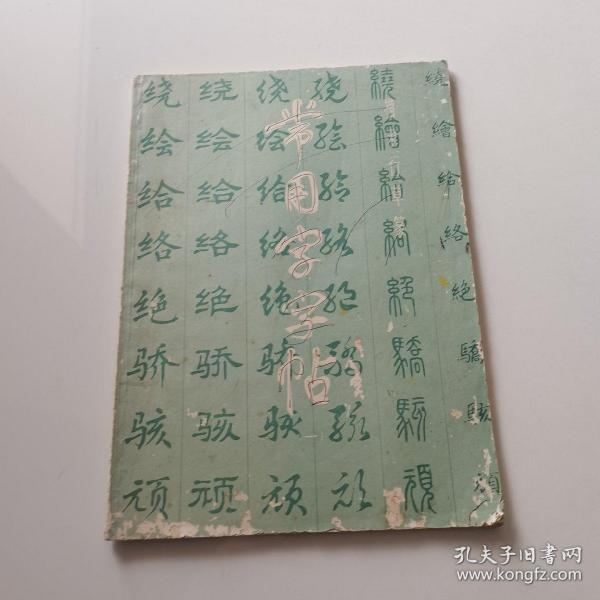 常用字字帖
绕 绕 绕 绕 繞 繞
绘 绘 绘 绘 繪 繪
给 给 给 给 給 給
络 络 络 络 絡 絡
绝 绝 绝 绝 絕 絕
骄 骄 骄 骄 驕 驕
骇 骇 骇 骇 駭 駭
顽 顽 顽 顽 頑 頑
孔夫子旧书网
www.kongfz.com